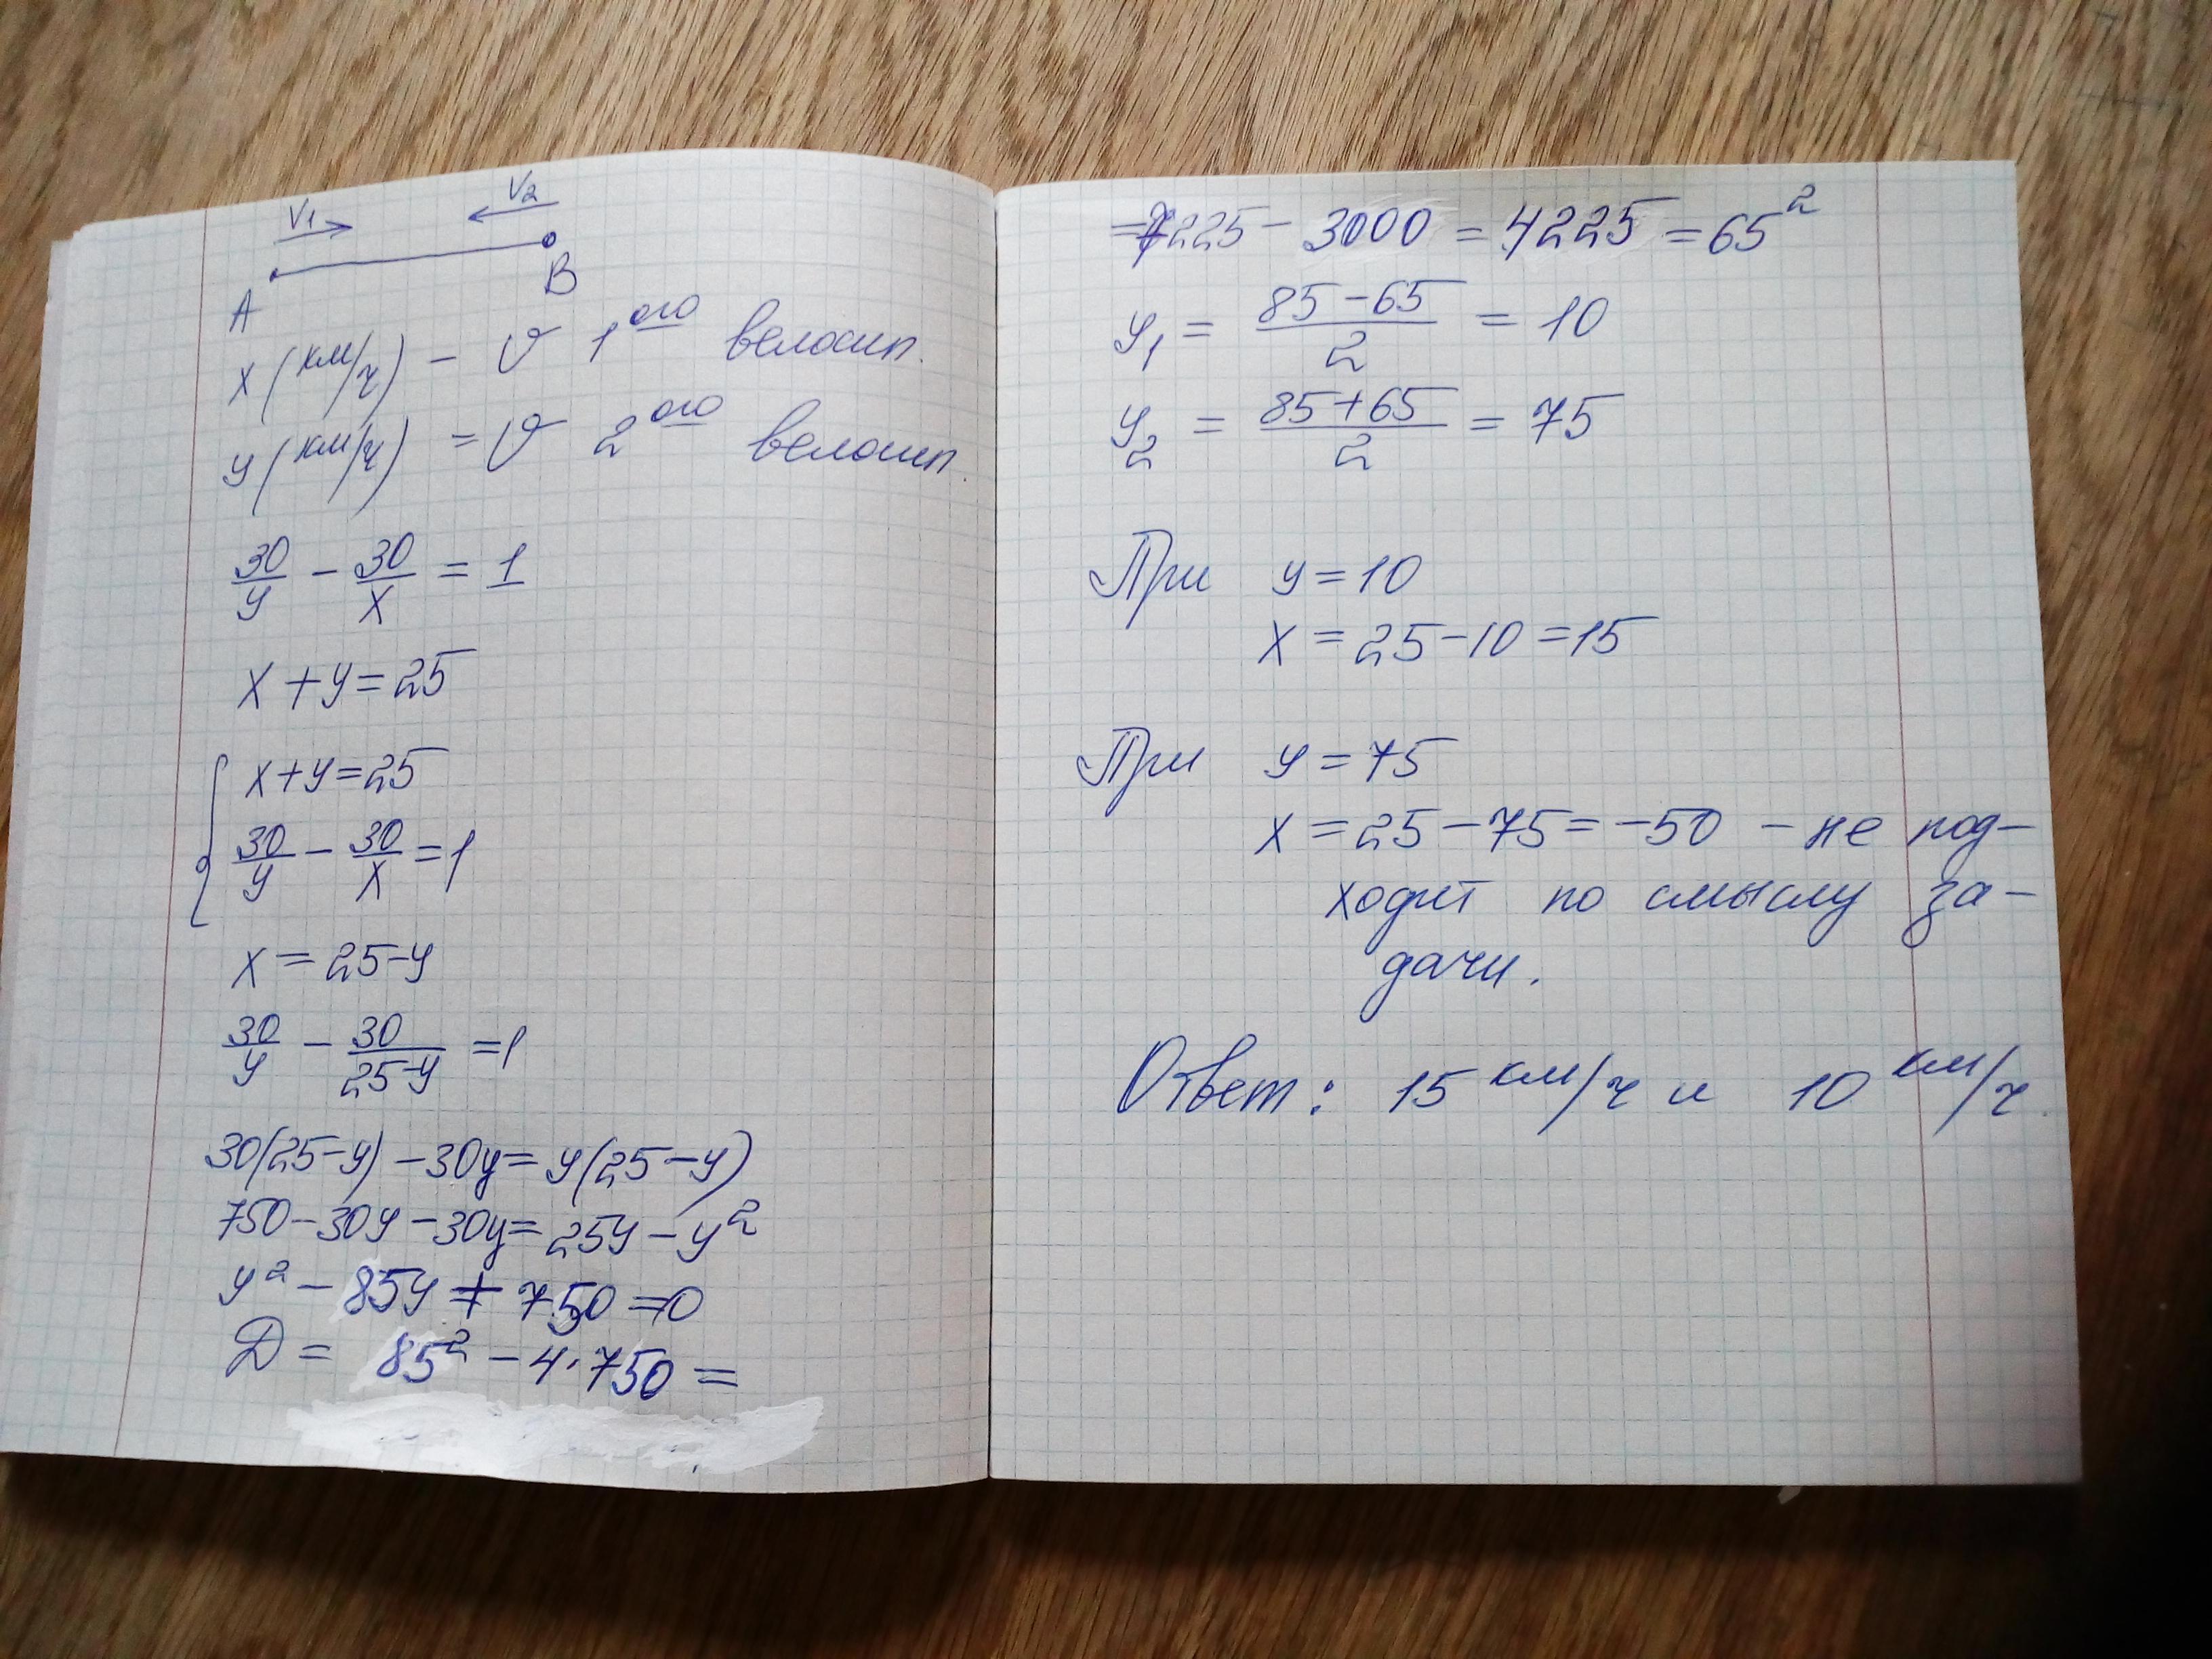 V1 V2
A B
x (км/ч) – V 1ого велосип.
y (км/ч) = V 2ого велосип.
30/y – 30/x = 1
x + y = 25
x + y = 25
30/y – 30/x = 1
x = 25 – y
30/y – 30/(25–y) = 1
30(25–y) – 30y = y(25–y)
750 – 30y – 30y = 25y – y²
y² – 85y + 750 = 0
Д = 85² – 4·750 =
= 7225 – 3000 = 4225 = 65²
y₁ = (85–65)/2 = 10
y₂ = (85+65)/2 = 75
При y = 10
x = 25–10 = 15
При y = 75
x = 25–75 = –50 – не под–
ходит по смыслу за–
дачи.
Ответ: 15 км/ч и 10 км/ч.